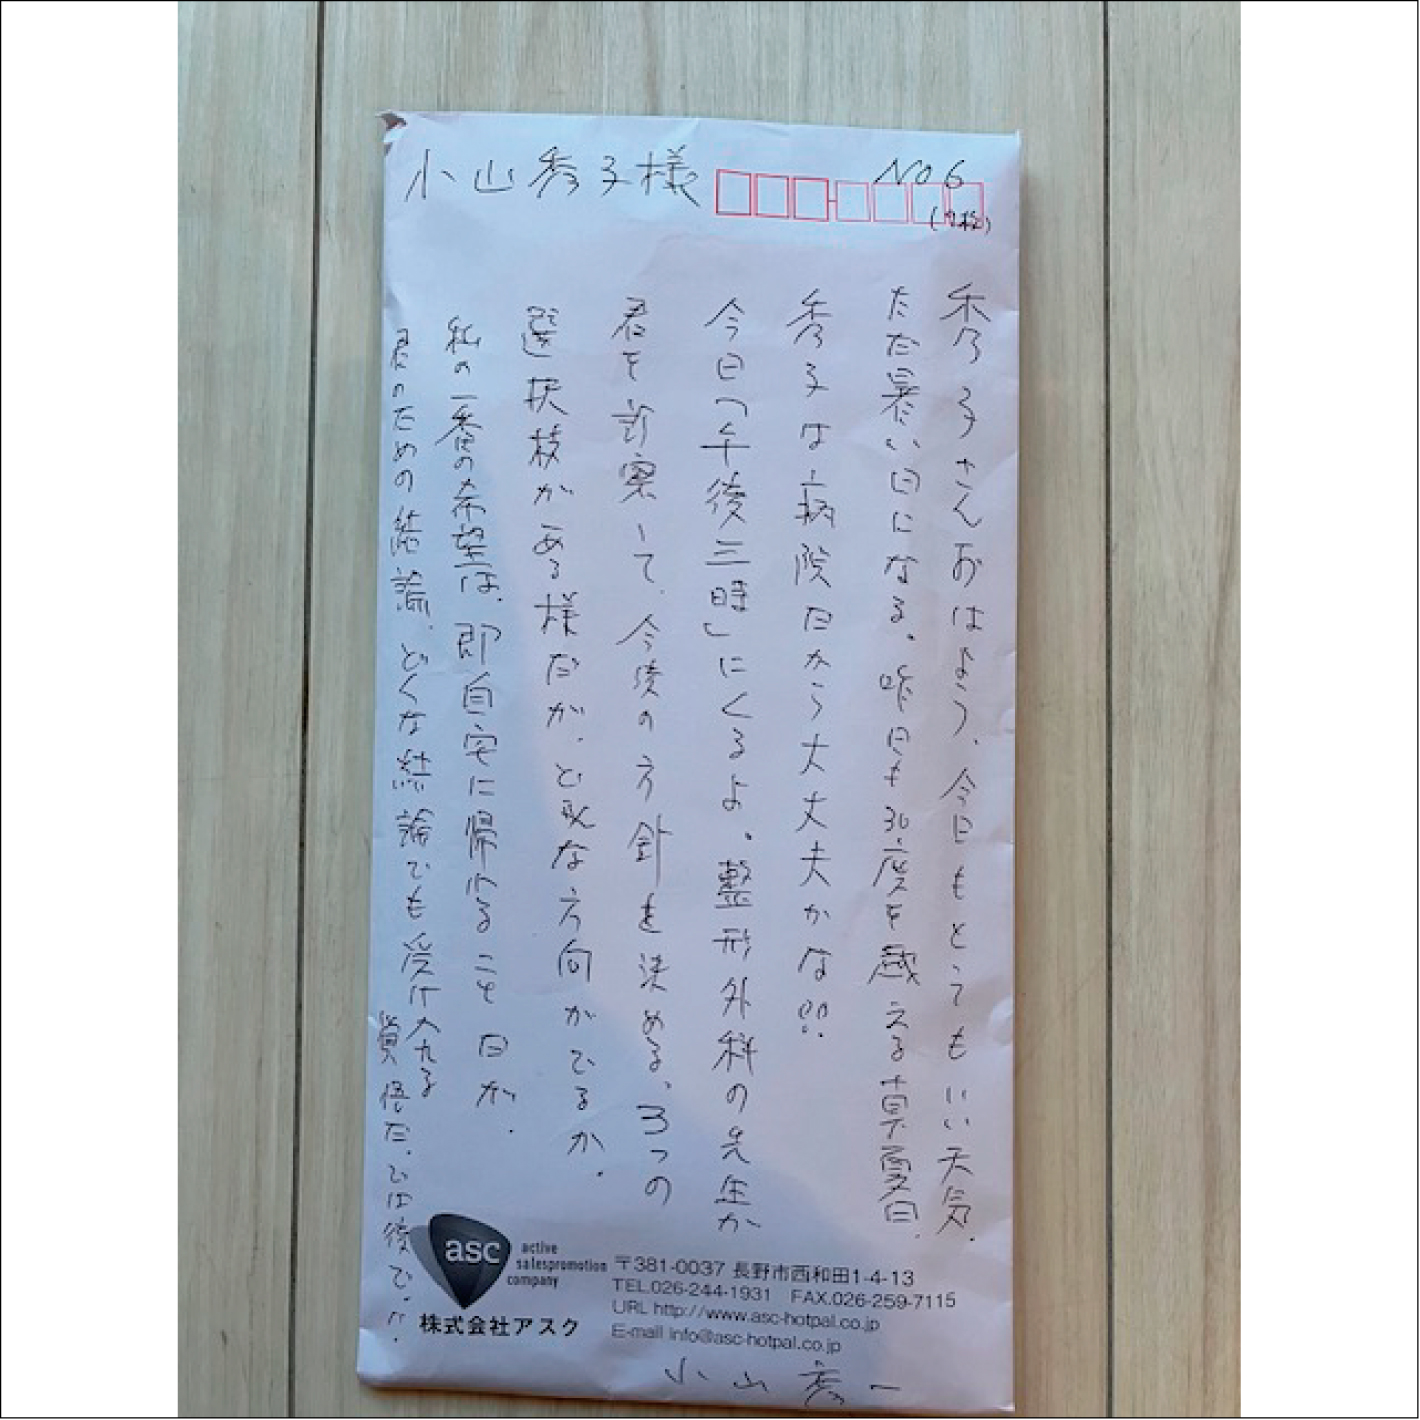 小山秀子様
NO6
秀子さんおはよう、今日もとてもいい天気.
ただ暑い日になる。昨日も30度を越える真夏日.
秀子は病院だから大丈夫かな!!
今日「午後三時」にくるよ。整形外科の先生が
君を診察して、今後の方針を決める、3つの
選択枝がある様だが、どんな方向がでるか.
私の一番の希望は、即自宅に帰れることだが.
君のための結論、どんな結論でも受け入れる
覚悟だ、では後で
asc
active
salespromotion
company
株式会社アスク
〒381-0037 長野市西和田1-4-13
TEL.026-244-1931 FAX.026-259-7115
URL http://www.asc-hotpal.co.jp
E-mail info@asc-hotpal.co.jp
小山秀一